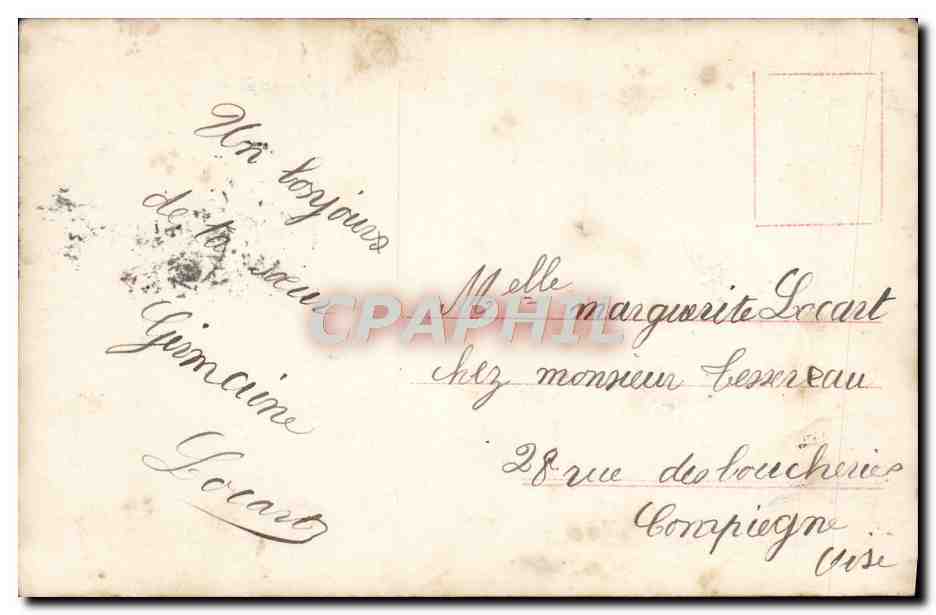 Un bonjours
de ta sœur
Germaine
Locart
Melle marguerite Locart
chez monsieur Tessereau
28 rue des boucheries
Compiegne
Oise
CPAPHIL